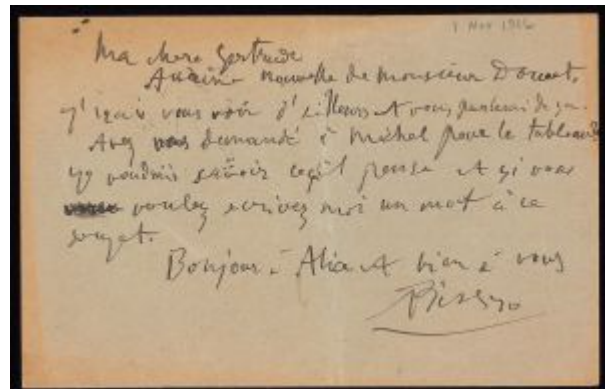 1 Nov 1916
Ma chere Gertrude
Aucune nouvelle de monsieur Doucet.
j'irais vous voir d'ailleurs et vous parlerai de ça.
Avez vous demandé à Michel pour le tableau
je voudrais savoir ce qil pense et si vous
voulez ecrivez moi un mot à ce
sujet.
Bonjour à Alice et bien à vous
Picasso